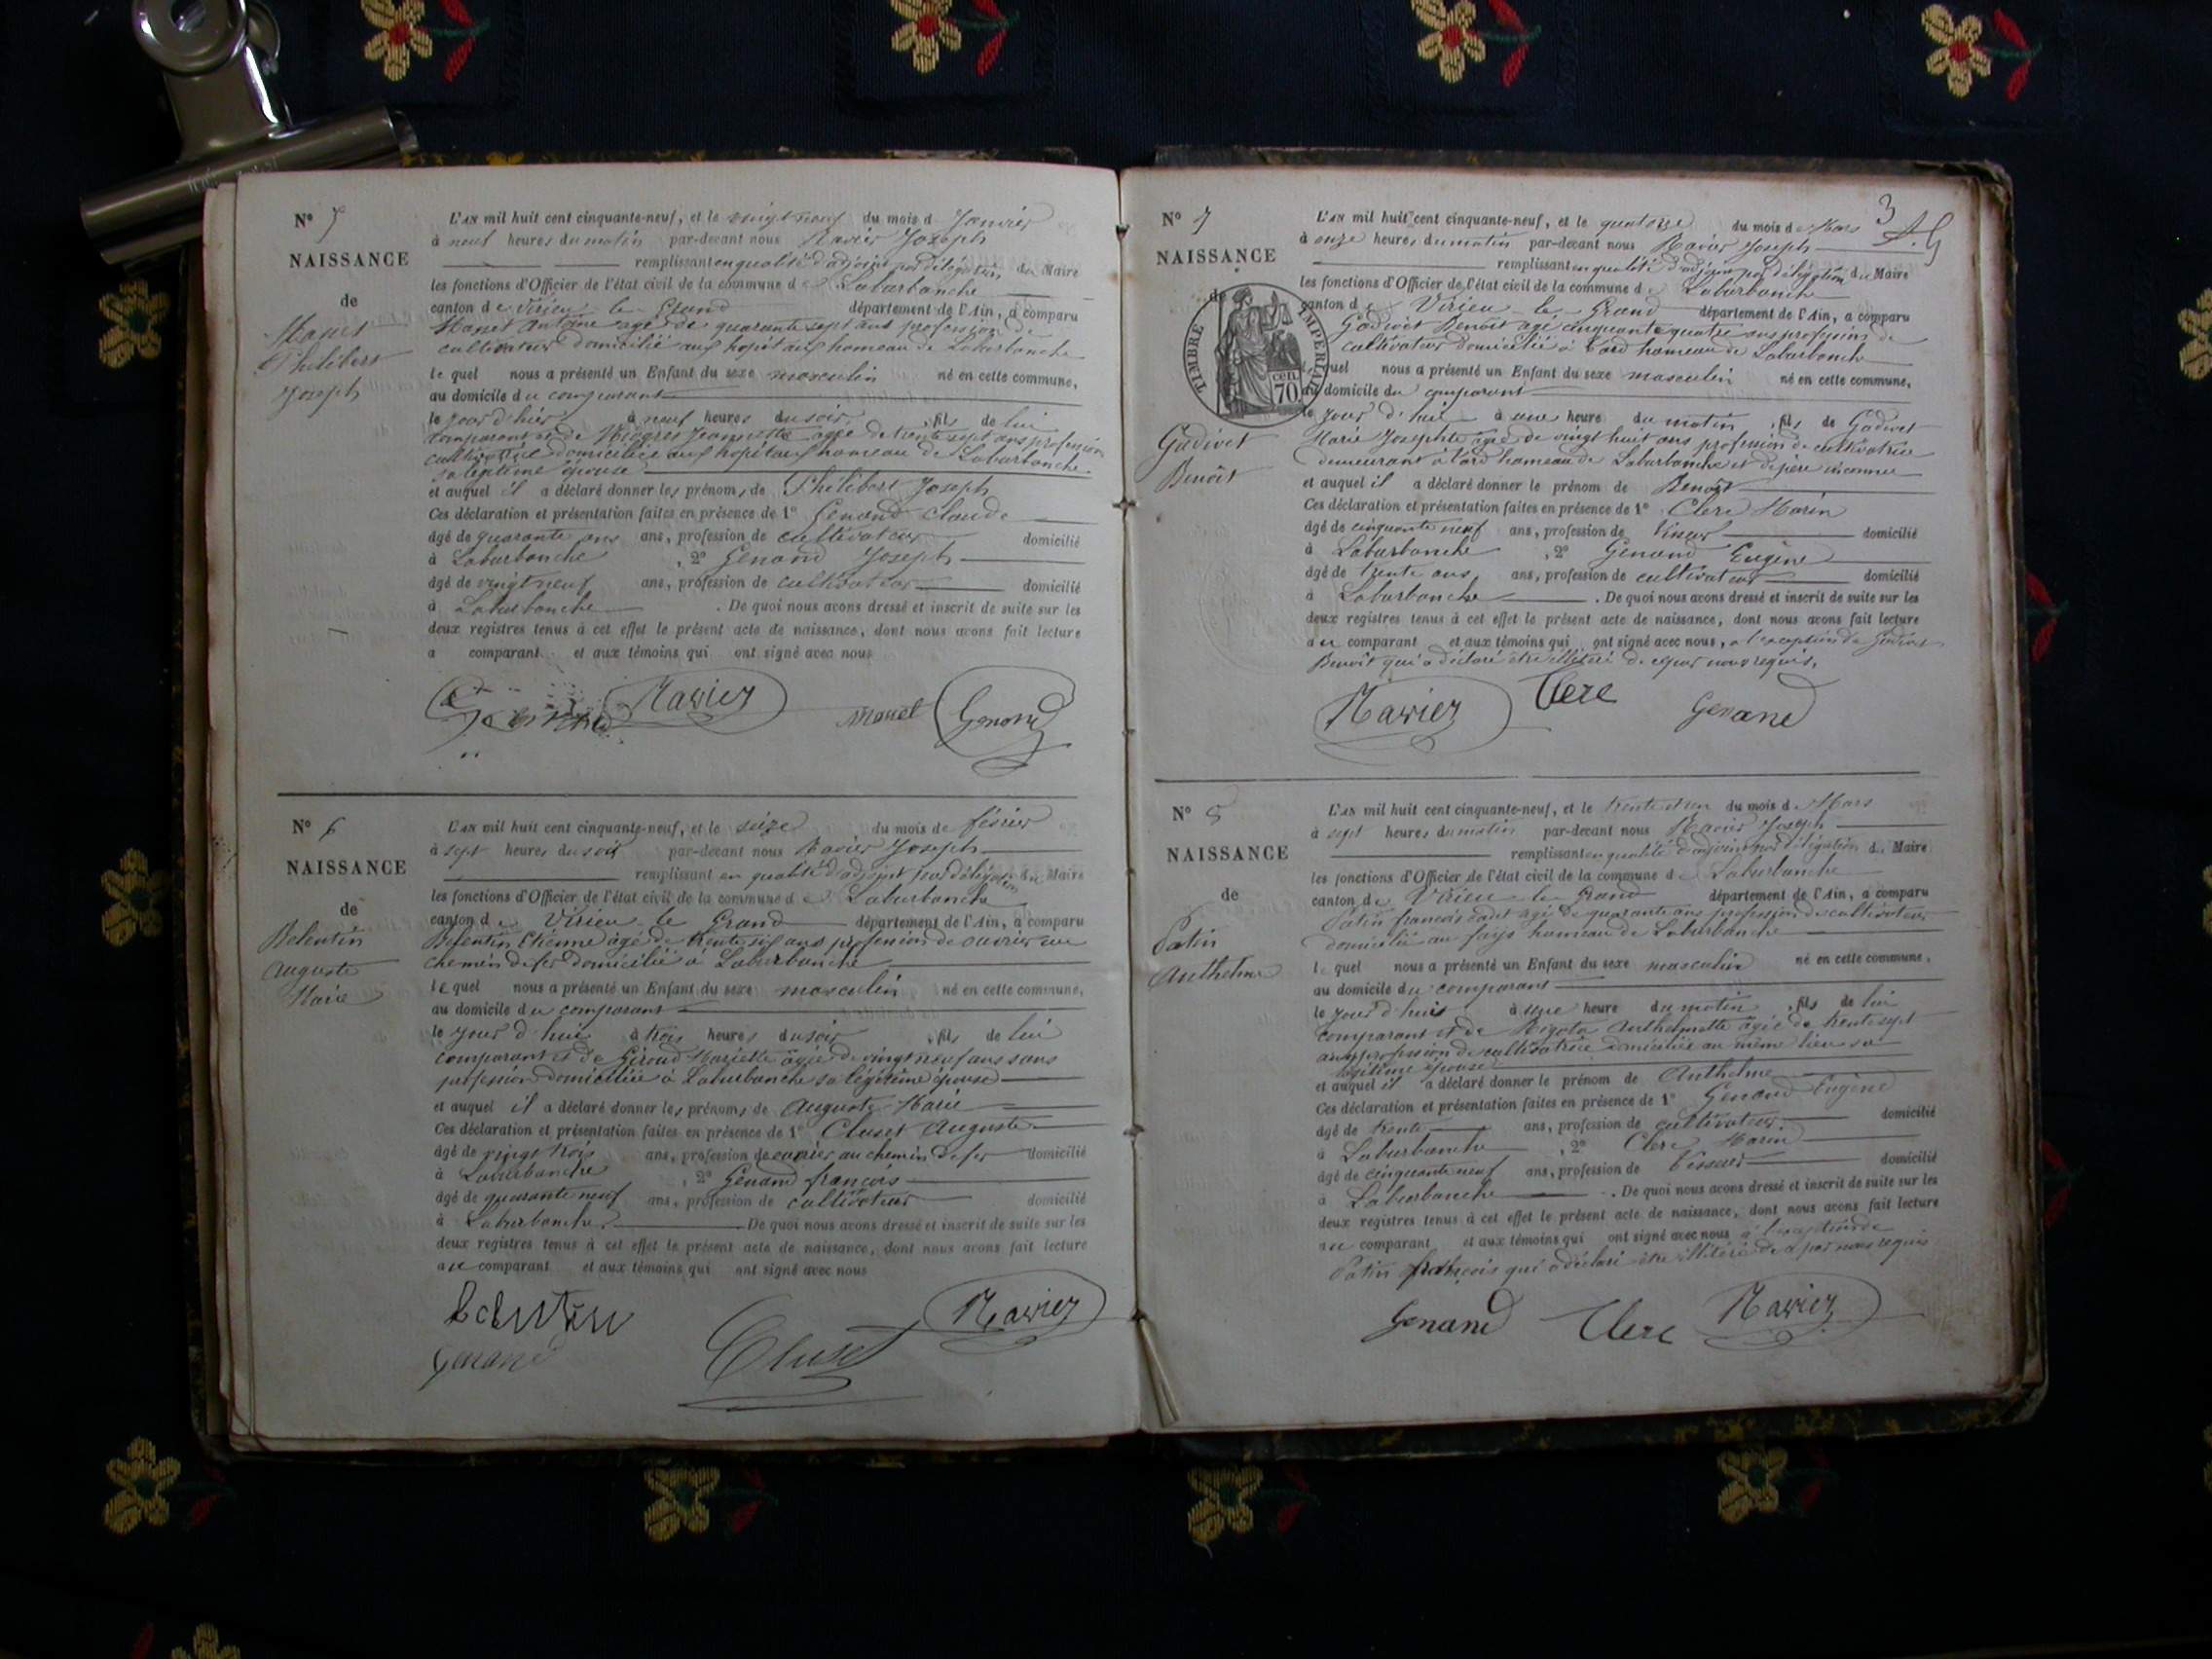 N° 5
NAISSANCE
de
Manet
Philibert
Joseph
L'AN mil huit cent cinquante-neuf, et le vingt neuf du mois de Janvier
à neuf heures du matin par-devant nous Navier Joseph
remplissant en qualité d'adjoint par délégation du Maire
les fonctions d'Officier de l'état civil de la commune de Laburbanche
canton de Virieu le Grand département de l'Ain, a comparu
Manet Antoine agé de quarante sept ans profession de
cultivateur domicilié aux hopitaux hameau de Laburbanche
le quel nous a présenté un Enfant du sexe masculin né en cette commune,
au domicile du comparant
le jour d'hier à neuf heures du soir, fils de lui
comparant et de Jeannette agée de trente sept ans profession
cultivatrice domiciliée aux hopitaux hameau de Laburbanche
sa légitime épouse
et auquel il a déclaré donner les prénoms de Philibert Joseph
Ces déclaration et présentation faites en présence de 1° Genand Claude
âgé de quarante ans ans, profession de cultivateur domicilié
à Laburbanche , 2° Genand Joseph
âgé de vingt neuf ans, profession de cultivateur domicilié
à Laburbanche . De quoi nous avons dressé et inscrit de suite sur les
deux registres tenus à cet effet le présent acte de naissance, dont nous avons fait lecture
a comparant et aux témoins qui ont signé avec nous
Navier Manet Genand
N° 6
NAISSANCE
de
Belentin
Auguste
Marie
L'AN mil huit cent cinquante-neuf, et le seize du mois de février
à sept heures du soir par-devant nous Navier Joseph
remplissant en qualité d'adjoint par délégation du Maire
les fonctions d'Officier de l'état civil de la commune de Laburbanche
canton de Virieu le Grand département de l'Ain, a comparu
Belentin Etienne agé de trente six ans profession de ouvrier au
chemin de fer domicilié à Laburbanche
le quel nous a présenté un Enfant du sexe masculin né en cette commune,
au domicile du comparant
le jour d'hui à trois heures du soir , fils de lui
comparant et de Giroud Mariette agée de vingt neuf ans sans
profession domiciliée à Laburbanche sa légitime épouse
et auquel il a déclaré donner les prénoms de Auguste Marie
Ces déclaration et présentation faites en présence de 1° Cluset Auguste
âgé de vingt trois ans, profession de ouvrier au chemin de fer domicilié
à Laburbanche , 2° Genand françois
âgé de quarante neuf ans, profession de cultivateur domicilié
à Laburbanche . De quoi nous avons dressé et inscrit de suite sur les
deux registres tenus à cet effet le présent acte de naissance, dont nous avons fait lecture
au comparant et aux témoins qui ont signé avec nous
Belentin Navier
Genand Cluset
3
N° 7
NAISSANCE
de
TIMBRE IMPERIAL
70 cen.
Gadivet
Benoît
L'AN mil huit cent cinquante-neuf, et le quatorze du mois de Mars
à onze heures du matin par-devant nous Navier Joseph
remplissant en qualité d'adjoint par délégation du Maire
les fonctions d'Officier de l'état civil de la commune de Laburbanche
canton de Virieu le Grand département de l'Ain, a comparu
Gadivet Benoît agé cinquante quatre ans profession de
cultivateur domicilié à hameau de Laburbanche
le quel nous a présenté un Enfant du sexe masculin né en cette commune,
au domicile du comparant
le jour d'hui à une heure du matin , fils de Gadivet
Marie Josephte agée de vingt huit ans profession de cultivatrice
demeurant à hameau de Laburbanche et de père inconnu
et auquel il a déclaré donner le prénom de Benoît
Ces déclaration et présentation faites en présence de 1° Clerc Marin
âgé de cinquante neuf ans, profession de tisseur domicilié
à Laburbanche , 2° Genand Eugène
âgé de trente ans ans, profession de cultivateur domicilié
à Laburbanche . De quoi nous avons dressé et inscrit de suite sur les
deux registres tenus à cet effet le présent acte de naissance, dont nous avons fait lecture
au comparant et aux témoins qui ont signé avec nous, a l'exception de Gadivet
Benoît qui a déclaré être illitéré de ce par nous requis.
Navier Clerc Genand
N° 8
NAISSANCE
de
Patin
Anthelme
L'AN mil huit cent cinquante-neuf, et le trente et un du mois de Mars
à sept heures du matin par-devant nous Navier Joseph
remplissant en qualité d'adjoint par délégation du Maire
les fonctions d'Officier de l'état civil de la commune de Laburbanche
canton de Virieu le Grand département de l'Ain, a comparu
Patin françois cadet agé de quarante ans profession de cultivateur
domicilié au fays hameau de Laburbanche
le quel nous a présenté un Enfant du sexe masculin né en cette commune,
au domicile du comparant
le jour d'hui à une heure du matin , fils de lui
comparant et de Anthelmette agée de trente sept
ans profession de cultivatrice domiciliée au même lieu sa
légitime épouse
et auquel il a déclaré donner le prénom de Anthelme
Ces déclaration et présentation faites en présence de 1° Genand Eugène
âgé de trente ans, profession de cultivateur domicilié
à Laburbanche , 2° Clerc Marin
âgé de cinquante neuf ans, profession de tisseur domicilié
à Laburbanche . De quoi nous avons dressé et inscrit de suite sur les
deux registres tenus à cet effet le présent acte de naissance, dont nous avons fait lecture
au comparant et aux témoins qui ont signé avec nous à l'exception de
Patin françois qui a déclaré être illitéré de ce par nous requis
Genand Clerc Navier